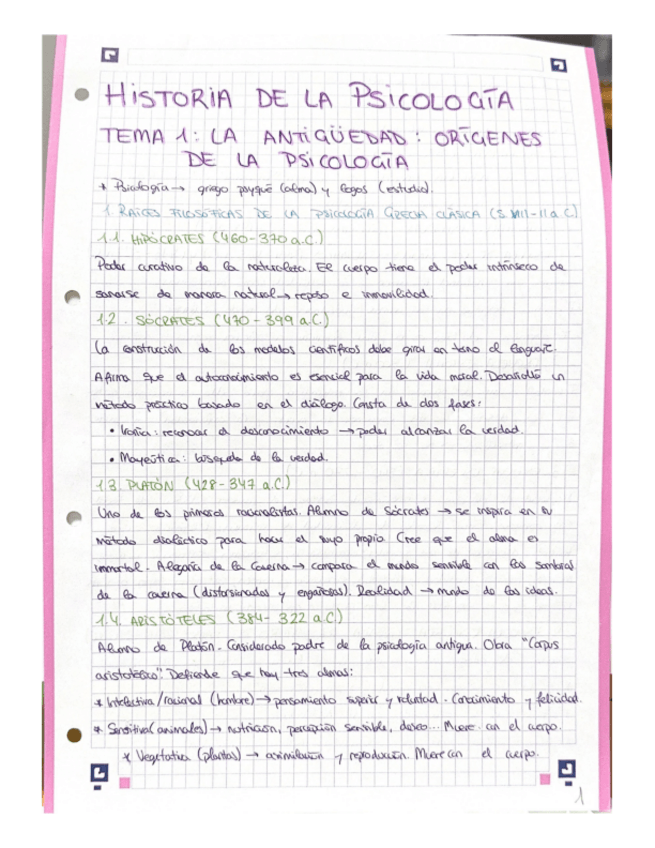 HISTORIA DE LA PSICOLOGÍA
TEMA 1: LA ANTIGÜEDAD: ORÍGENES
DE LA PSICOLOGÍA
* Psicología → griego psyqué (alma) y logos (estudio).
1. RAÍCES FILOSÓFICAS DE LA PSICOLOGÍA GRECIA CLÁSICA (S. VIII-II a.C)
1.1. HIPÓCRATES (460-370 a.C.)
Poder curativo de la naturaleza. El cuerpo tiene el poder intrínseco de
sanarse de manera natural → reposo e inmovilidad.
1.2. SÓCRATES (470-399 a.C.)
La construcción de los modelos científicos debe girar en torno al lenguaje.
Afirma que el autoconocimiento es esencial para la vida moral. Desarrolló un
método práctico basado en el diálogo. Consta de dos fases:
• Ironía: reconocer el desconocimiento → poder alcanzar la verdad.
• Mayéutica: búsqueda de la verdad.
1.3. PLATÓN (428-347 a.C.)
Uno de los primeros racionalistas. Alumno de Sócrates → se inspira en su
método dialéctico para hacer el suyo propio. Cree que el alma es
inmortal. Alegoría de la Caverna → compara el mundo sensible con las sombras
de la caverna (distorsionadas y engañosas). Realidad → mundo de las ideas.
1.4. ARISTÓTELES (384-322 a.C.)
Alumno de Platón. Considerado padre de la psicología antigua. Obra "Corpus
aristotélico". Defiende que hay tres almas:
* Intelectiva/racional (hombre) → pensamiento superior y voluntad. Conocimiento y felicidad.
* Sensitiva (animales) → nutrición, percepción sensible, deseo... Muere con el cuerpo.
* Vegetativa (plantas) → asimilación y reproducción. Muere con el cuerpo.
1